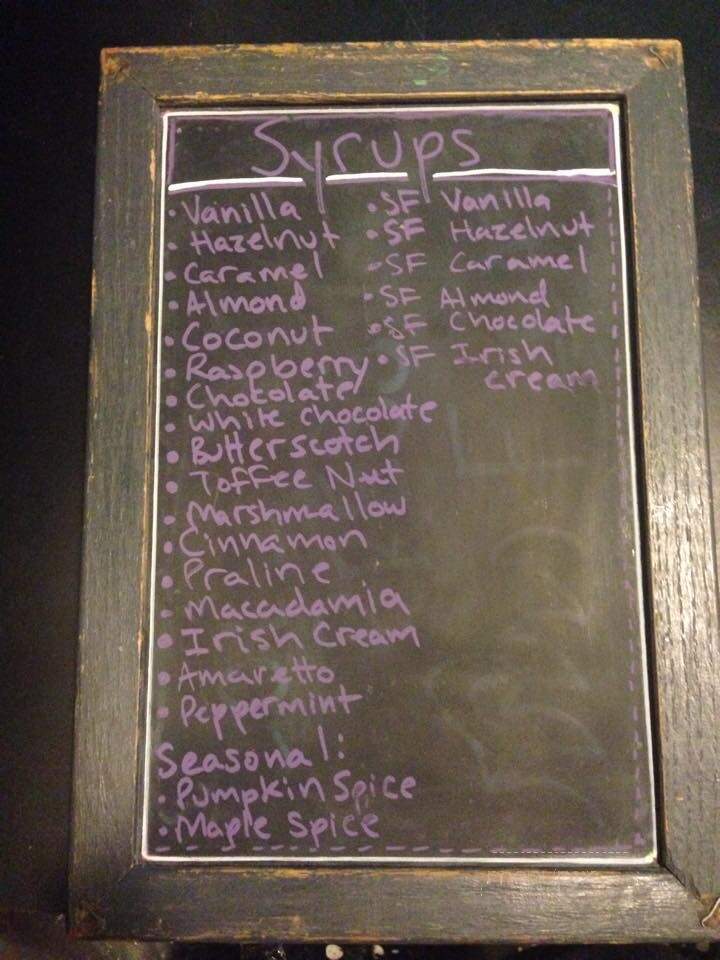 Syrups
• Vanilla
• Hazelnut
• Caramel
• Almond
• Coconut
• Raspberry
• Chocolate
• White chocolate
• Butterscotch
• Toffee Nut
• Marshmallow
• Cinnamon
• Praline
• Macadamia
• Irish Cream
• Amaretto
• Peppermint
Seasonal:
• Pumpkin Spice
• Maple Spice
• SF Vanilla
• SF Hazelnut
• SF Caramel
• SF Almond
• SF Chocolate
• SF Irish
cream